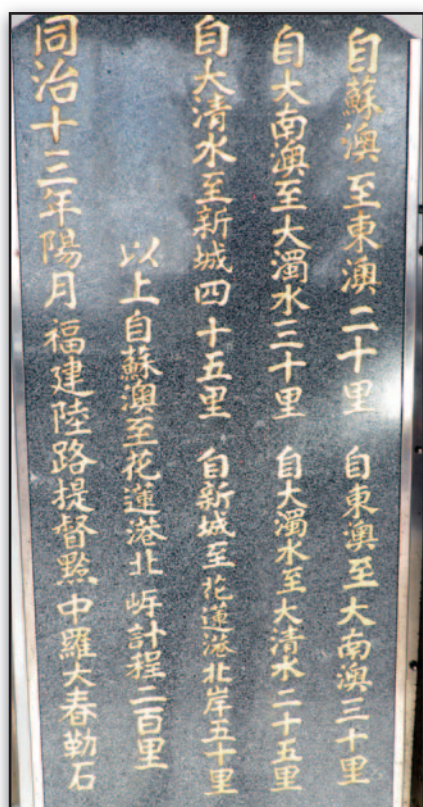 自蘇澳至東澳二十里 自東澳至大南澳三十里
自大南澳至大濁水三十里 自大濁水至大清水二十五里
自大清水至新城四十五里 自新城至花蓮港北岸五十里
以上自蘇澳至花蓮港北岍計程二百里
同治十三年陽月福建陸路提督黙中羅大春勒石